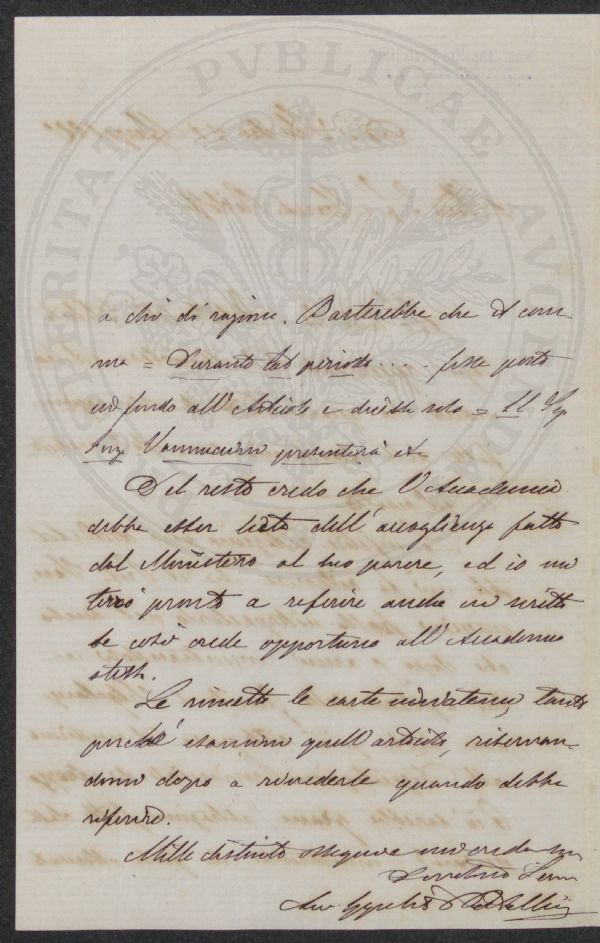 PVBLICAE
a chi di ragione. Basterebbe che il com-
ma = Durante tal periodo .... fosse posto
in fondo all'Articolo e dicesse solo = Il Sig
Ing. Vannuccini presenterà etc
Del resto credo che l'Accademia
debba esser lieta dell'accoglienza fatta
dal Ministero al suo parere, ed io mi
terrò pronto a riferire anche in iscritto
se così crede opportuno all'Accademia
stessa.
Le rimetto le carte inviatemi, tanto
perché esamini quell'articolo, riserván-
domi dopo a rivederle quando debba
riferire.
Mille distinti ossequi e mi creda suo
Devotissimo